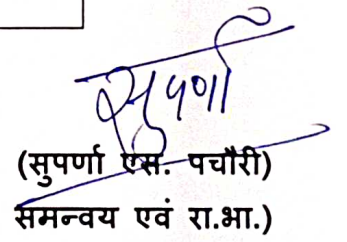 सुपर्णा
(सुपर्णा एस. पचौरी)
समन्वय एवं रा.भा.)